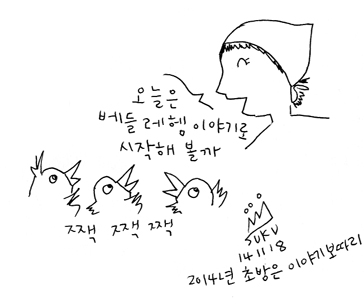 오늘은
베들레헴 이야기로
시작해 볼까
짹 짹 짹
SUKU
141118
2014년 초방은 이야기보따리